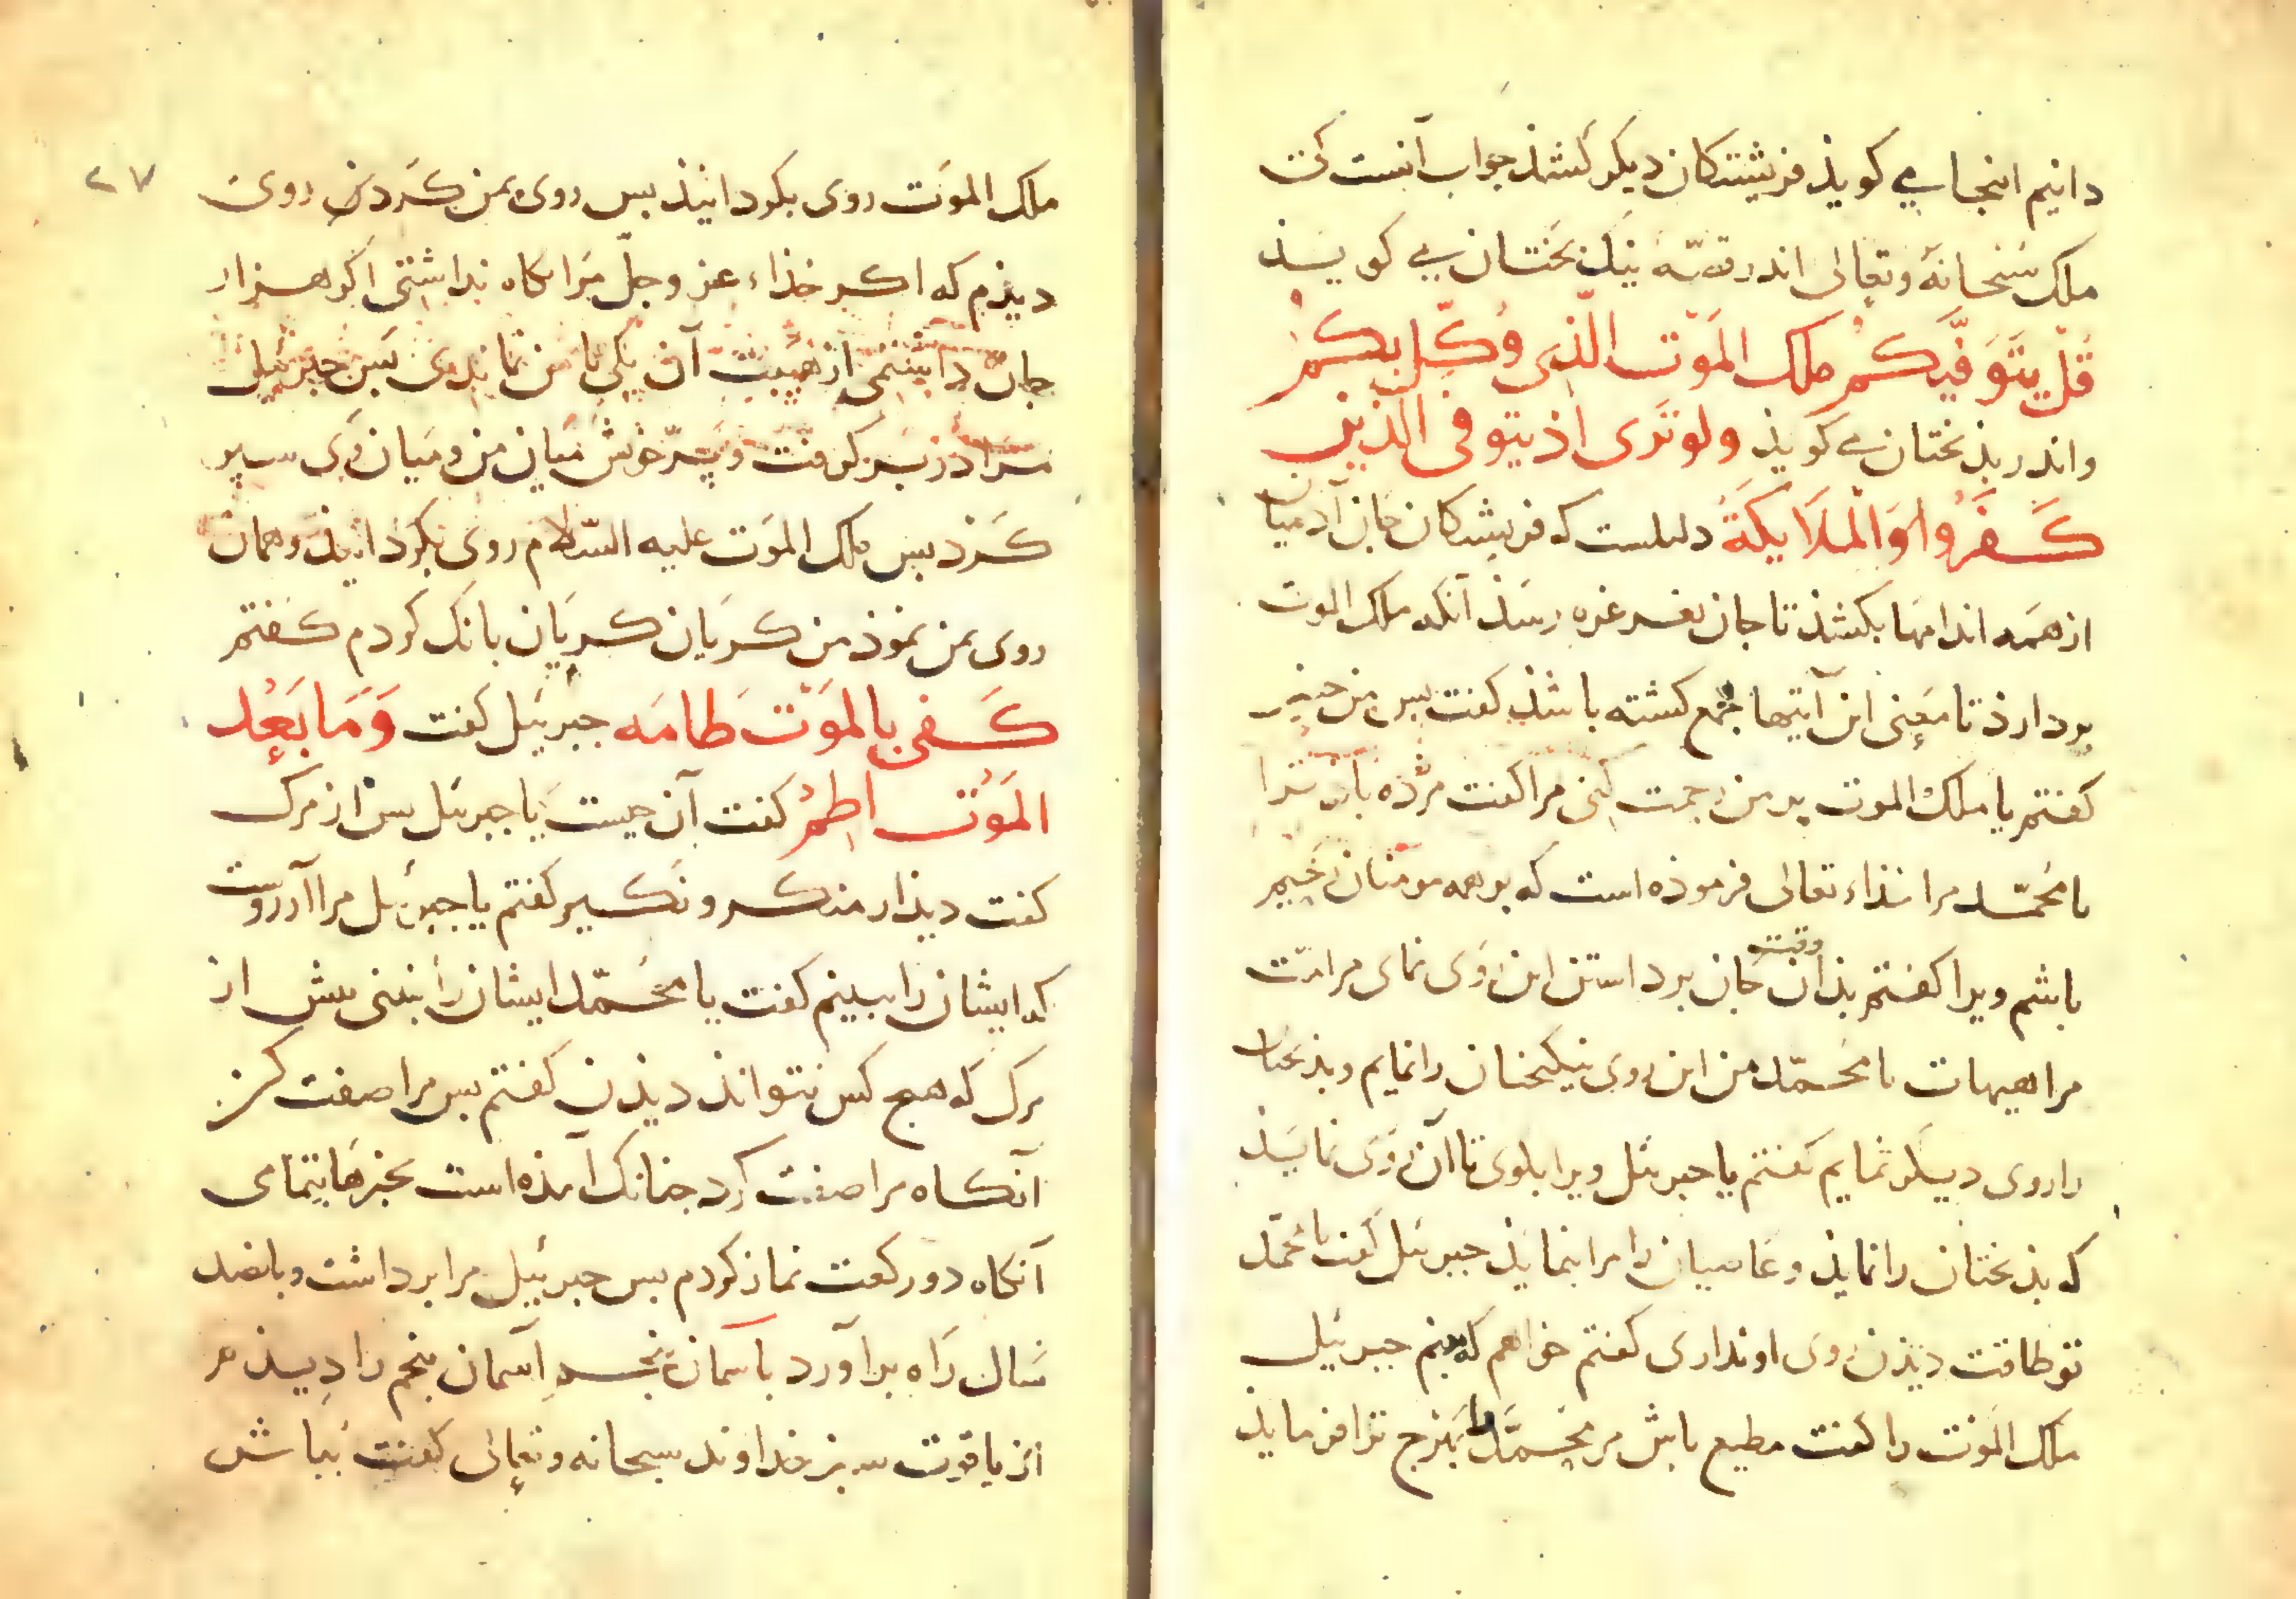 دانیم اینجا مے کویذ فریشتکان دیکر کشند جواب آنست کی
ملک سُبْحانَهُ وتعالی اندر قصّهٔ نیک بختان مے کویذ
قُلْ یَتَوَفَّیکُمْ مَلَکُ المَوْتِ الَّذِی وُکِّلَ بِکُمْ
واندر بذبختان مے کویذ ولو تَرَی اذ یتوفی الَّذین
کَفَرُوا وَالْمَلَایِکَةُ دلیلست که فریشتکان جان آدمیان
از همه اندامها بکشذ تا جان بغرغره رسَذ آنکه ملک الموت
بردارذ تا معنی این آیتها جمع کشته باشذ کفت بس من
کفتم یا ملک الموت بر من رحمت کنی مرا کفت مژده باذ ترا
یا محمّد مرا خذاء تعالی فرموذه است که بر همه مومنان رَحیم
باشم ویرا کفتم بذان وقت جان برداستن این رَوی نمای مر امّت
مرا هیهات یا محمّد من این روی نیکبختان را نمایم و بذبختان
را روی دیکر نمایم کفتم یا جبرئیل ویرا بکوی تا آن رَوی نمایذ
که بذبختان را نمایذ و عاصیان را مرا بنمایذ جبرئیل کفت یا محمّد
تو طاقت دیذن روی او نداری کفتم خواهم که بینم جبرئیل
ملک المَوْت را کفت مطیع باش مر محمّد را بهرج ترا فرمایذ
٢٧
ملک الموَت روی بکردانیذ بس روی بمن کَرد من روی
دیذم که اکر خذاء عز وجلّ مَرا نکاه نداشتی اکر هزار
جان داشتمی از هیبت آن یکی با من نماندی بس جبرئیل
مَرا در بَر کرفت و پرّ خوش میان من و میان وَی سپر
کَرد بس ملک الموَت علیه السّلام روی بکردانیذ و همان
روی بمن نموذ من کریان کریان بانک کردم کفتم
کَفی بالموَتَ طامَه جبرئیل کفت وَمَا بَعْد
المَوْت اطمُ کفت آن جیست یا جبرئیل بس از مرک
کفت دیذار منکر و نکیر کفتم یا جبرئیل مرا آرزوست
که ایشان را ببینم کفت یا محمّد ایشان را بینی بیش از
مرک که هیچ کس نتواند دیذن کفتم بس مرا صفت کن
آنکاه مرا صفت کرد جنانک آمذه است بخبرها بتمامی
آنکاه دو رکعت نماز کردم بس جبرئیل مرا برداشت و بانصد
سَال رَاه برآورد باسمان پنجم آسمان پنجم را دیذم
از یاقوت سبز خداوند سبحانه وتعالی کفت بباش